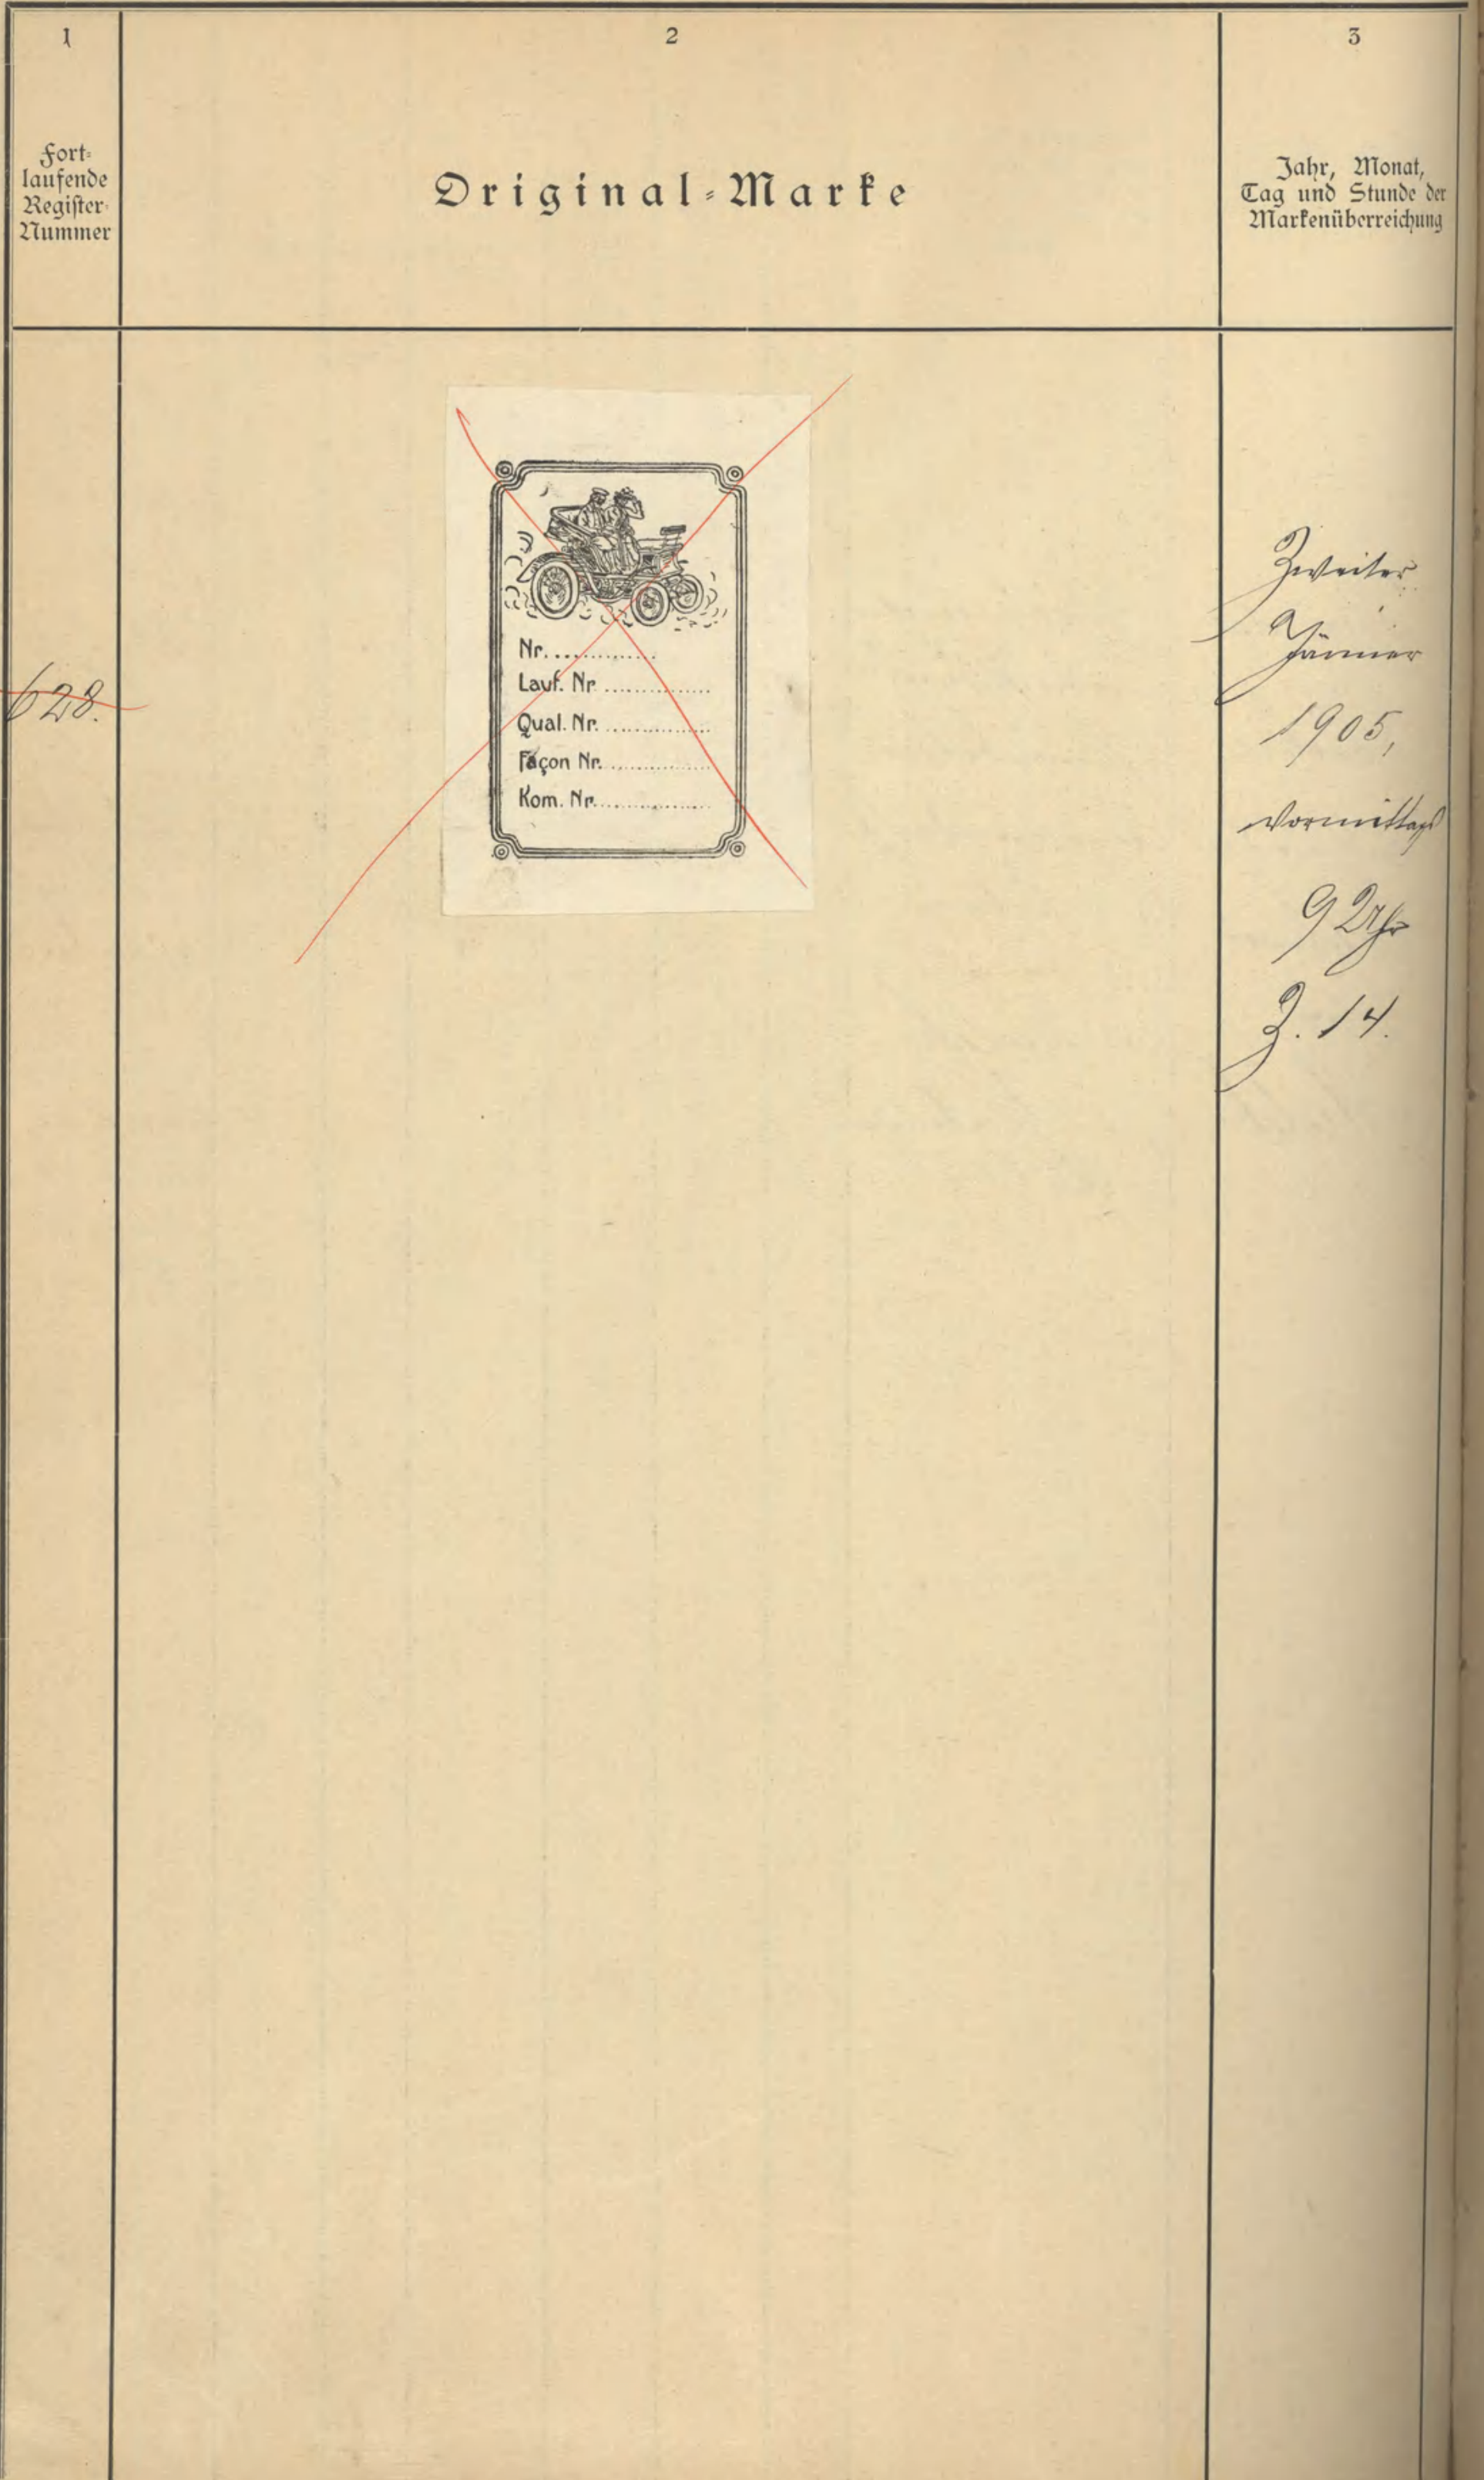 1
2
3
Fort-
laufende
Register-
Nummer
Original-Marke
Jahr, Monat,
Tag und Stunde der
Markenüberreichung
628.
Nr. ...............
Lauf. Nr ...............
Qual. Nr. ...............
Façon Nr. ...............
Kom. Nr. ...............
Zweiter
Jänner
1905,
Vormittags
9 Uhr
Z. 14.